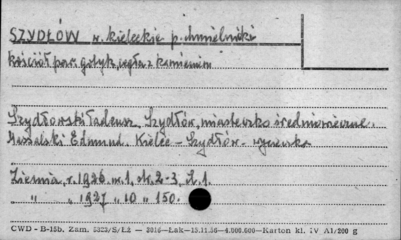 SZYDŁÓW w. kieleckie p. chmielnicki
kościół par. gotyk, cegła z kamieniem
Szydłowski Tadeusz. Szydłów, miasteczko średniowieczne.
Massalski Edmund. Kielce - Szydłów - wycieczka
Ziemia, r. 1926. nr. 1, str. 2-3, il. 1.
" " 1927 " 10 " 150.
CWD - B-15b. Zam. 5323/S/Ł2 — 2016—Łak—15.11.56—4.000.000—Karton kl. IV A1/200 g